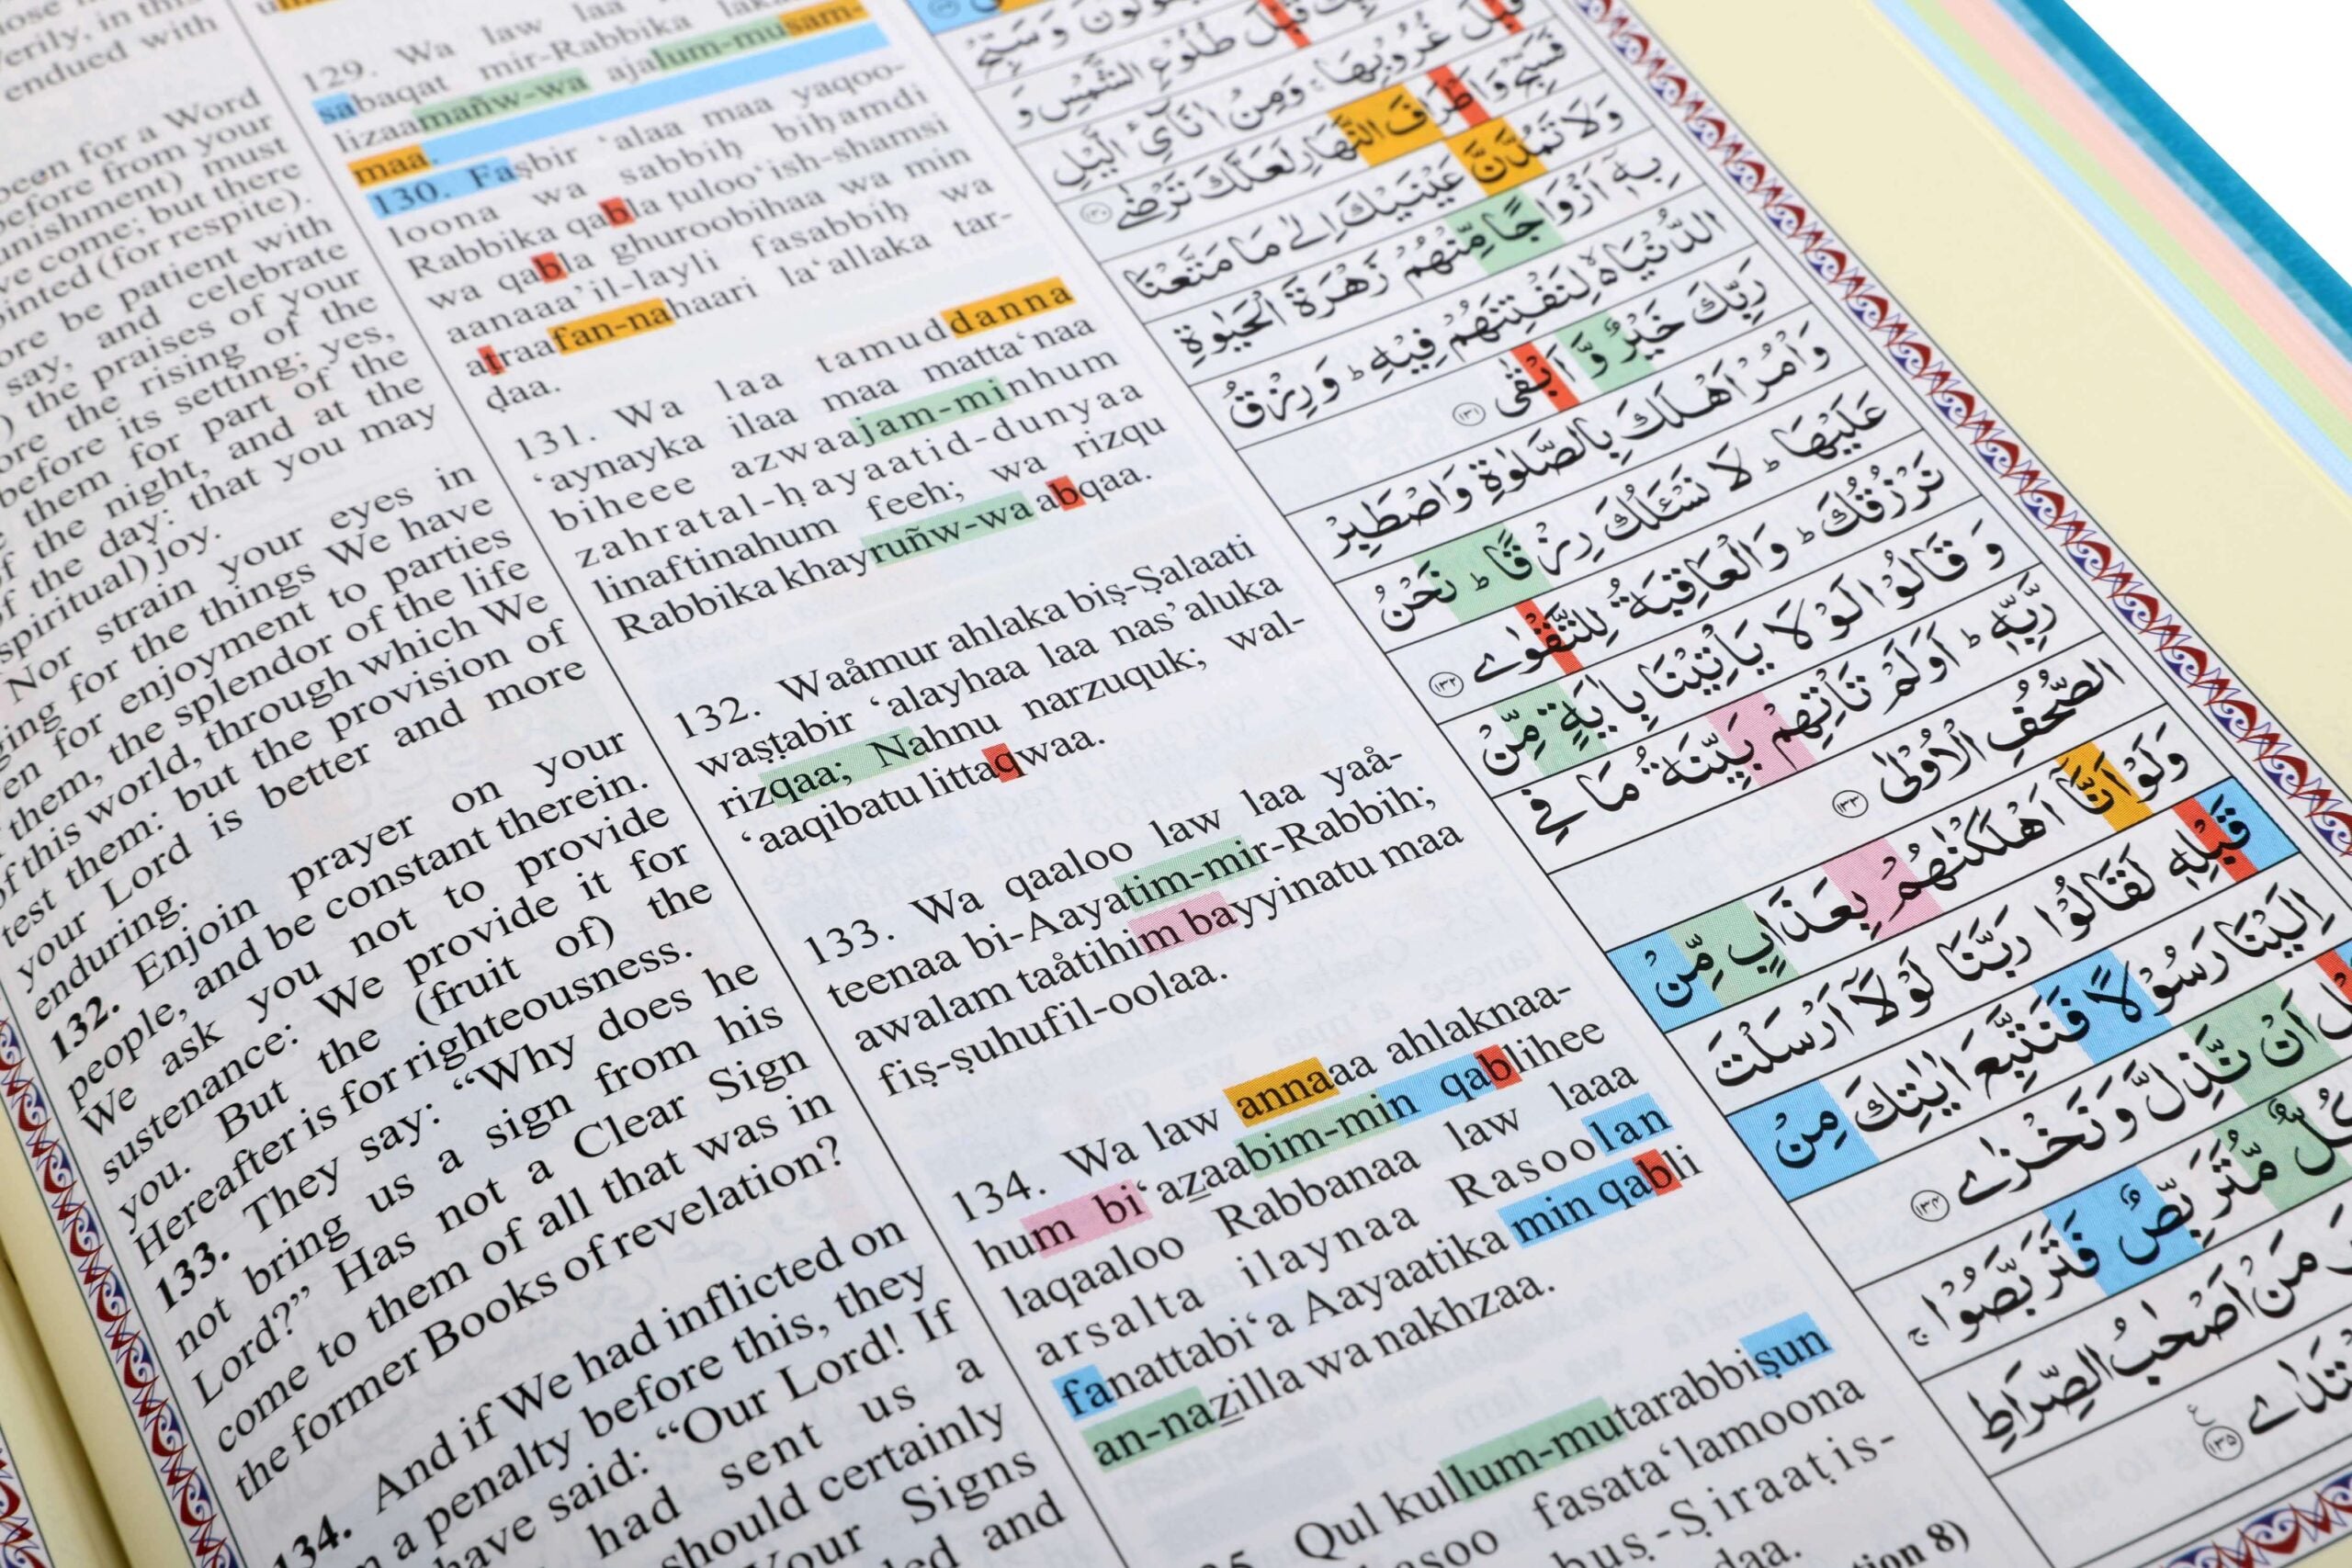 Verily, in this
endued with
been for a Word
before from your
must
come; but there
(for respite).
be patient with
say, and celebrate
the praises of your
the rising of the
before its setting; yes,
them for part of the
the night, and at the
the day: that you may
spiritual) joy.
Nor strain your eyes in
for the things We have
for enjoyment to parties
them, the splendor of the life
of this world, through which We
test them: but the provision of
your Lord is better and more
enduring.
132. Enjoin prayer on your
people, and be constant therein.
We ask you not to provide
sustenance: We provide it for
you. But the (fruit of) the
Hereafter is for righteousness.
133. They say: “Why does he
not bring us a sign from his
Lord?” Has not a Clear Sign
come to them of all that was in
the former Books of revelation?
134. And if We had inflicted on
a penalty before this, they
have said: “Our Lord! If
had sent us a
should certainly
Your Signs
and
129. Wa law laa
sabaqat mir-Rabbika
lizaamañw-wa ajalum-musam-
maa.
130. Faṣbir ‘alaa maa yaqoo-
loona wa sabbiḥ biḥamdi
Rabbika qabla ṭuloo‘ish-shamsi
wa qabla ghuroobihaa wa min
aanaaa’il-layli fasabbiḥ wa
aṭraafan-nahaari la‘allaka tar-
ḍaa.
131. Wa laa tamuddanna
‘aynayka ilaa maa matta‘naa
biheee azwaajam-minhum
zahratal-ḥayaatid-dunyaa
linaftinahum feeh; wa rizqu
Rabbika khayruñw-wa abqaa.
132. Waåmur ahlaka biṣ-Ṣalaati
waṣṭabir ‘alayhaa laa nas’aluka
rizqaa; Nahnu narzuquk; wal-
‘aaqibatu littaqwaa.
133. Wa qaaloo law laa yaå-
teenaa bi-Aayatim-mir-Rabbih;
awalam taåtihim bayyinatu maa
fiṣ-ṣuhufil-oolaa.
134. Wa law annaaa ahlaknaa-
hum bi‘azaabim-min qablihee
laqaaloo Rabbanaa law laaa
arsalta ilaynaa Rasoolan
fanattabi‘a Aayaatika min qabli
an-nazilla wa nakhzaa.
Qul kullum-mutarabbiṣun
fasata‘lamoona
Ṣiraaṭis-
8)
قَبْلَ طُلُوْعِ الشَّمْسِ وَ
قَبْلَ غُرُوْبِهَا ۚ وَمِنْ اٰنَآئِ الَّيْلِ
فَسَبِّحْ وَاَطْرَافَ النَّهَارِ لَعَلَّكَ تَرْضٰى ۝۱۳۰
وَلَا تَمُدَّنَّ عَيْنَيْكَ اِلٰى مَا مَتَّعْنَا
بِهٖٓ اَزْوَاجًا مِّنْهُمْ زَهْرَةَ الْحَيٰوةِ
الدُّنْيَا ۙ لِنَفْتِنَهُمْ فِيْهِ ؕ وَرِزْقُ
رَبِّكَ خَيْرٌ وَّاَبْقٰى ۝۱۳۱
وَاْمُرْ اَهْلَكَ بِالصَّلٰوةِ وَاصْطَبِرْ
عَلَيْهَا ؕ لَا نَسْـَٔلُكَ رِزْقًا ؕ نَحْنُ
نَرْزُقُكَ ؕ وَالْعَاقِبَةُ لِلتَّقْوٰى ۝۱۳۲
وَقَالُوْا لَوْلَا يَاْتِيْنَا بِاٰيَةٍ مِّنْ
رَّبِّهٖ ؕ اَوَلَمْ تَاْتِهِمْ بَيِّنَةُ مَا فِى
الصُّحُفِ الْاُوْلٰى ۝۱۳۳
وَلَوْ اَنَّآ اَهْلَكْنٰهُمْ بِعَذَابٍ مِّنْ
قَبْلِهٖ لَقَالُوْا رَبَّنَا لَوْلَآ اَرْسَلْتَ
اِلَيْنَا رَسُوْلًا فَنَتَّبِعَ اٰيٰتِكَ مِنْ
اَنْ نَّذِلَّ وَنَخْزٰى ۝۱۳۴
مُّتَرَبِّصٌ فَتَرَبَّصُوْا ۚ
مَنْ اَصْحٰبُ الصِّرَاطِ
۝۱۳۵